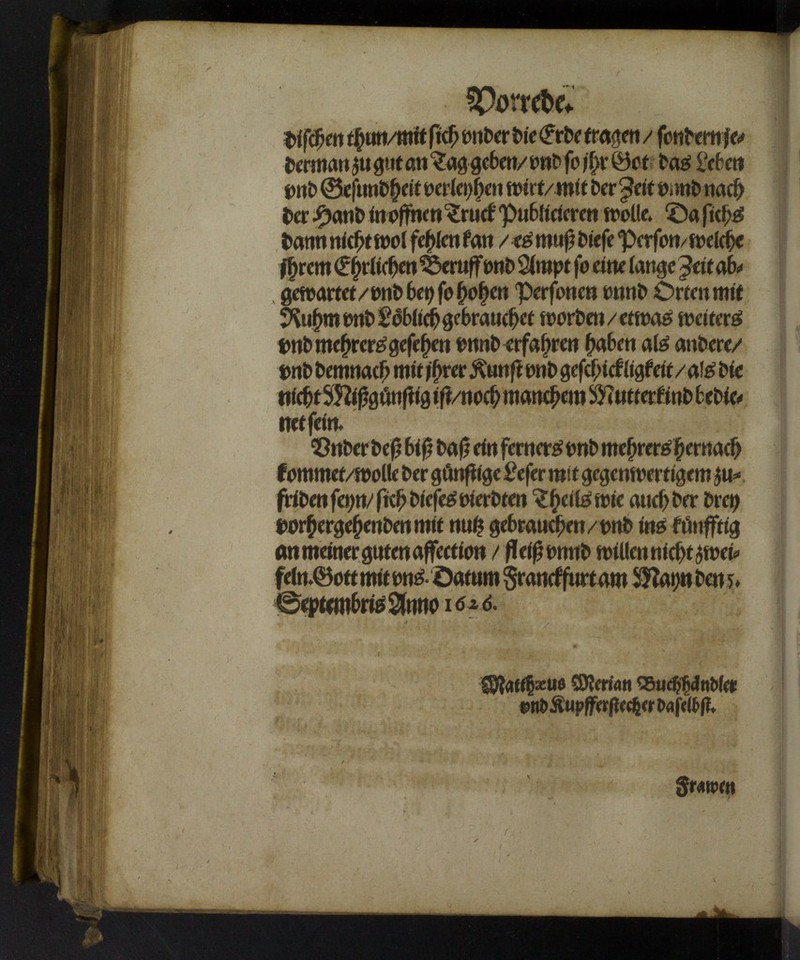 Vorrede.
dischen thun/mit sich vnder die Erde tragen / sondern je-
derman zu gut an Tag geben/ vnd so jhr Got das Leben
vnd Gesundheit verleyhen wirt/ mit der Zeit vnnd nach
der Hand in offnen Truck Publicieren wolle. Da sichs
dann nicht wol fehlen kan / es muß diese Person/ welche
jhrem Ehrlichen Beruff vnd Ampt so eine lange Zeit ab-
gewartet / vnd bey so hohen Personen vnnd Orten mit
Ruhm vnd Löblich gebrauchet worden / etwas weiters
vnd mehrers gesehen vnnd erfahren haben als andere/
vnd demnach mit jhrer Kunst vnd geschickligkeit / als die
nicht Mißgünstig ist/noch manchem Mutterkind bedie-
net sein.
Vnder deß biß daß ein ferners vnd mehrers hernach
kommet/wolle der günstige Leser mit gegenwertigem zu-
friden seyn/ sich dieses vierdten Theils wie auch der drey
vorhergehenden mit nutz gebrauchen / vnd ins künfftig
an meiner guten affection / fleiß vnnd willen nicht zwei-
feln. Gott mit vns. Datum Franckfurt am Mayn den 5.
Septembris Anno 1626.
Matthæus Merian Buchhändler
vnd Kupfferstecher daselbst.
Frawen